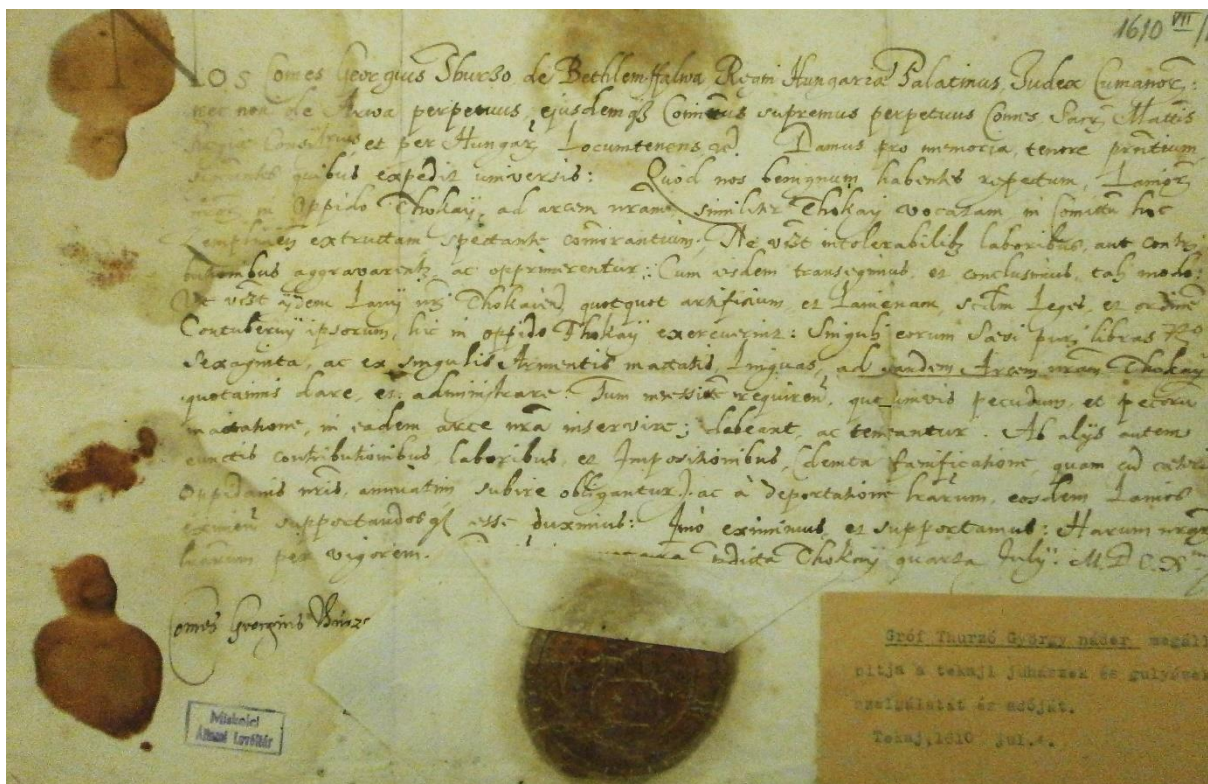 1610 VII/
NOS Comes Georgius Thurzo de Bethlemffalwa Regni Hungariæ Palatinus, Judex Cumanor:
nec non de Arwa perpetuus, ejusdemq Comittus supremus perpetuus Comes, Sacr Mattis
et per Hungar Locumtenens, Damus pro memoria, tenore pntium
quibus expedit universis: Quòd nos benignum habentes respectum, Lanior
in Oppido Thokay, ad arcem nram similiter Thokay vocatam, in Comittu hoc
extructam spectante comorantium; Ne intolerabilib laboribus, aut contri
butionibus aggravarent, ac opprimerentur: Cum ijsdem transegimus, et conclusimus, tali modo:
Ut Lanij nri quotquot artificium, et Lanienam, Leges, et ordine
Contubernij ipsorum, hic in oppido Thokay exercuerint: Singuli eorum Sævi puri libras
sexaginta, ac ex singulis Armentis mactatis, Linguas, ad eandem Arcem nram Thokay
quotannis dare, et administrare. Tum necessite requiren, pecudum, et pecoru
mactatione, in eadem arce nra inservire; debeant, ac teneantur. Ab alijs autem
cunctis contributionibus, laboribus, et Impositionibus, (demta fænificatione, quam cu cæteri
Oppidanis nris, annuatim subire obligantur.) ac à deportatione lrarum, eosdem Lanios
supportandosq esse duximus: Imò eximimus, et supportamus: Harum nrar
lrarum per vigorem. Thokay quarta July. M.D.C.X
Comes Georgius Thurzo
Miskolci
Állami Levéltár
Gróf Thurzó György nádor megáll
pitja a tokaji juhászok és gulyások
szolgálatát és adóját.
Tokaj,1610 jul.4.